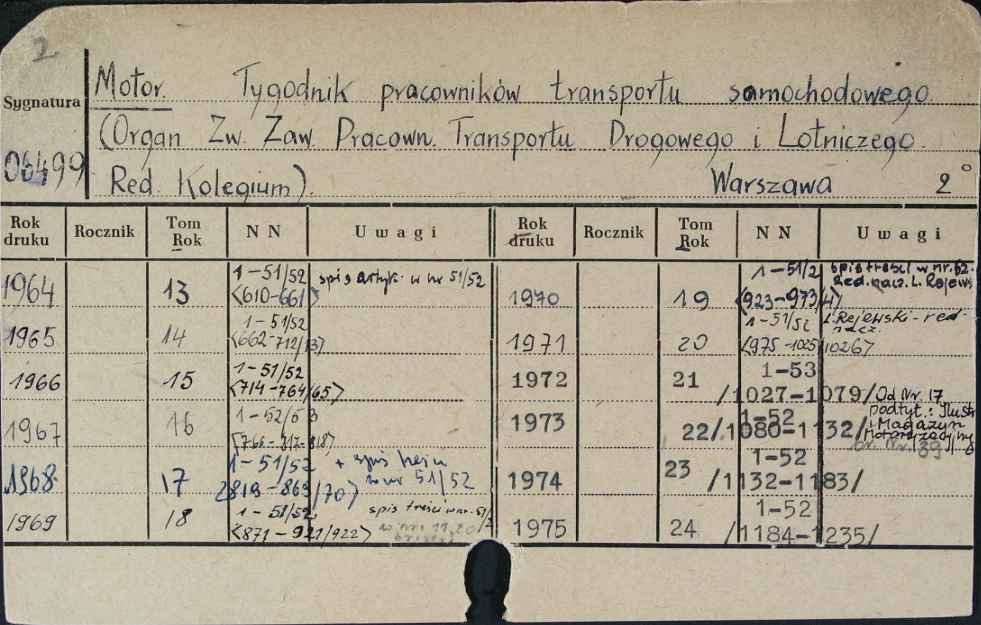 2
Sygnatura
06499
Motor. Tygodnik pracowników transportu samochodowego.
(Organ Zw. Zaw. Pracown. Transportu Drogowego i Lotniczego.
Red. Kolegium). Warszawa 2°
Rok druku Rocznik Tom Rok NN Uwagi Rok druku Rocznik Tom Rok NN Uwagi
1964 13 1-51/52 <610-661> spis artyk. w nr 51/52
1965 14 1-51/52 <662-712/13>
1966 15 1-51/52 <714-764/65>
1967 16 1-52/53 <766-817-818>
1968 17 1-51/52 <819-869/70> + spis treści w nr 51/52
1969 18 1-51/52 <871-921/922> spis treści w nr. 51/
1970 19 1-51/2 <923-973/4> spis treści w nr. 52. Red. nacz. L. Rejews
1971 20 1-51/52 <975-1025/1026> L. Rejewski - red. nacz.
1972 21 1-53 /1027-1079/
1973 22 1-52 /1080-1132/ Od Nr. 17 podtyt.: Ilustr. Magazyn Motoryzacyjny
br. Nr. 39
1974 23 1-52 /1132-1183/
1975 24 1-52 /1184-1235/